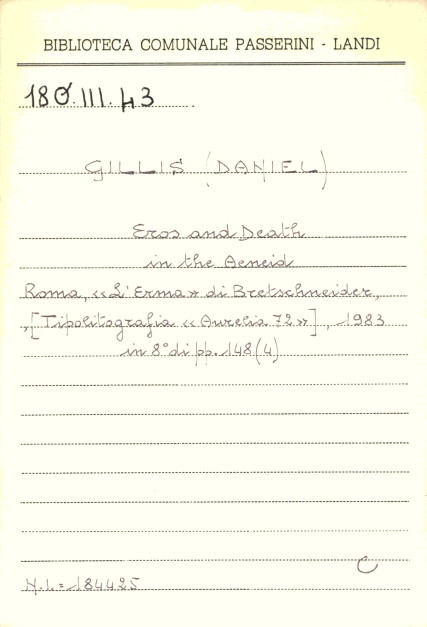 BIBLIOTECA COMUNALE PASSERINI - LANDI
180.III.43
GILLIS (DANIEL)
Eros and Death
in the Aeneid
Roma, «L'Erma» di Bretschneider,
,[Tipolitografia «Aurelia 72»], 1983
in 8° di pp. 148(4)
C
N.I.= 184425